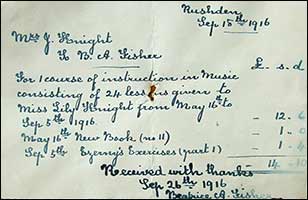 Rushden,
Sep 15th 1916
Mrs J. Knight
To B. A. Fisher
£. s. d
For 1 course of instruction in Music
consisting of 24 lessons given to
Miss Lily Knight from May 16th to
Sep 5th 1916. - 12. 6
May 16th New Book (no 11) - 1.
Sep 5th Czerny's Exercises (part 1) - 1.
14.
Received with thanks
Sep 26th 1916
Beatrice A. Fisher.